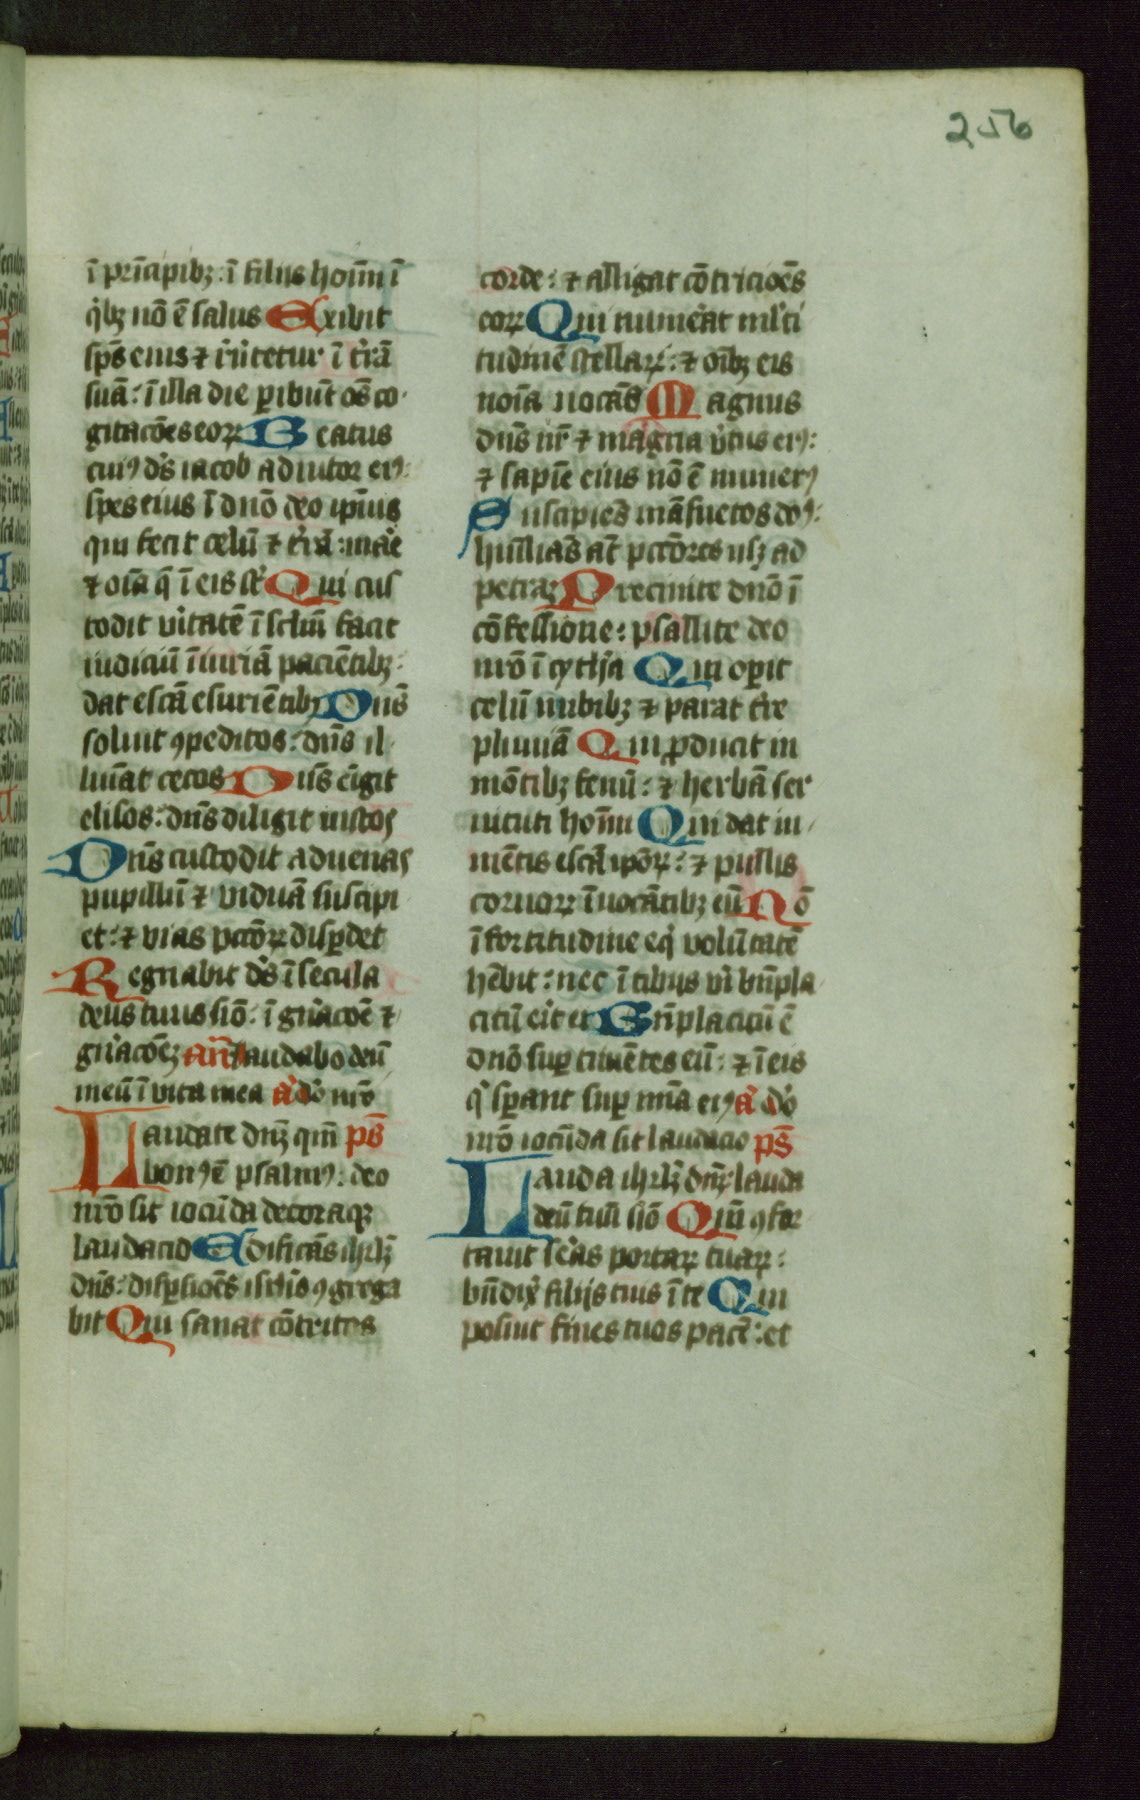 256
ī prīcipibꝫ: ī filiis hoīm ī
q̇bꝫ nō ē salus Exibit
spūs eius ⁊ ru̇tetur ī tr̄ā
suā: ī illa die ꝑibūt oēs co-
gitacōes eoꝝ Beatus
cuiꝰ dˢ iacob adiutor eiꝰ:
spes eius ī dno deo ipīus
qui fecit celū ⁊ tr̄ā: mae
⁊ oīa q̄ ī eis st̄ Qui cus
todit v̇itatē ī sclm̄ facit
iudiciū īiuriā paciētibꝫ:
dat escā esuriētibꝫ Dn̄s
soluit ꝯpeditos: dn̄s il-
luīat cecos Dn̄s eīgit
elisos: dn̄s diligit iustos
Dn̄s custodit aduenas
pupillū ⁊ viduā suscipi
et: ⁊ vias pctōꝝ disꝑdet
Regnabit dˢ ī secula
deus tuus siō: ī gn̄acōē ⁊
gn̄acōēꝫ an̄ Laudabo deū
meū ī vita mea a̅ dō nr̄o
Laudate dn̄ꝫ qm̄ pˢ
bonꝰ ē psalmꝰ: deo
nr̄o sit iocūda decoraqꝫ
laudacio Edificās ihrl̄ꝫ
dn̄s: disꝑsiōēs isrl̄is ꝯgrega
bit Qui sanat cōtritos
corde: ⁊ alligat cōtricioēs
eoꝝ Qui numeāt ml̄ti
tudinē stellaꝝ: ⁊ oībꝫ eis
noīa vocās Magnus
dn̄s nr̄ ⁊ magna v̇tus eiꝰ:
⁊ sapīe eius nō ē numerꝰ
Suscipiēs māsuetos dōˢ:
hūilias āt pctōres usqꝫ ad
petraꝫ Precinite dn̄o ī
cōfessione: psallite deo
nr̄o ī cythā Qui oꝑit
celū nubibꝫ ⁊ parat tr̄e
pluuiā Qui ꝓducit in
mōtibꝫ fenū: ⁊ herbā ser
uituti hoīm Qui dat iu-
mētis escā ipōꝝ: ⁊ pullis
coruoꝝ īuocātibꝫ eū Nō
ī fortitudine eq̇ volūtatē
hēbit: nec ī tibijs vi̇ bn̄pla
citū eīt ei Bn̄placitū ē
dn̄o suꝑ timētes eū: ⁊ ī eis
q̇ sꝑant suꝑ mīa eiꝰ a̅ dō
nr̄o iocūda sit laudacio pˢ
Lauda ihrl̄ꝫ dn̄ꝫ lauda
deū tuū siō Qm̄ ꝯfor-
tauit seās portaꝝ tuaꝝ:
bn̄dix̄ filijs tuis ī te Qui
posuit fines tuos pacē: et